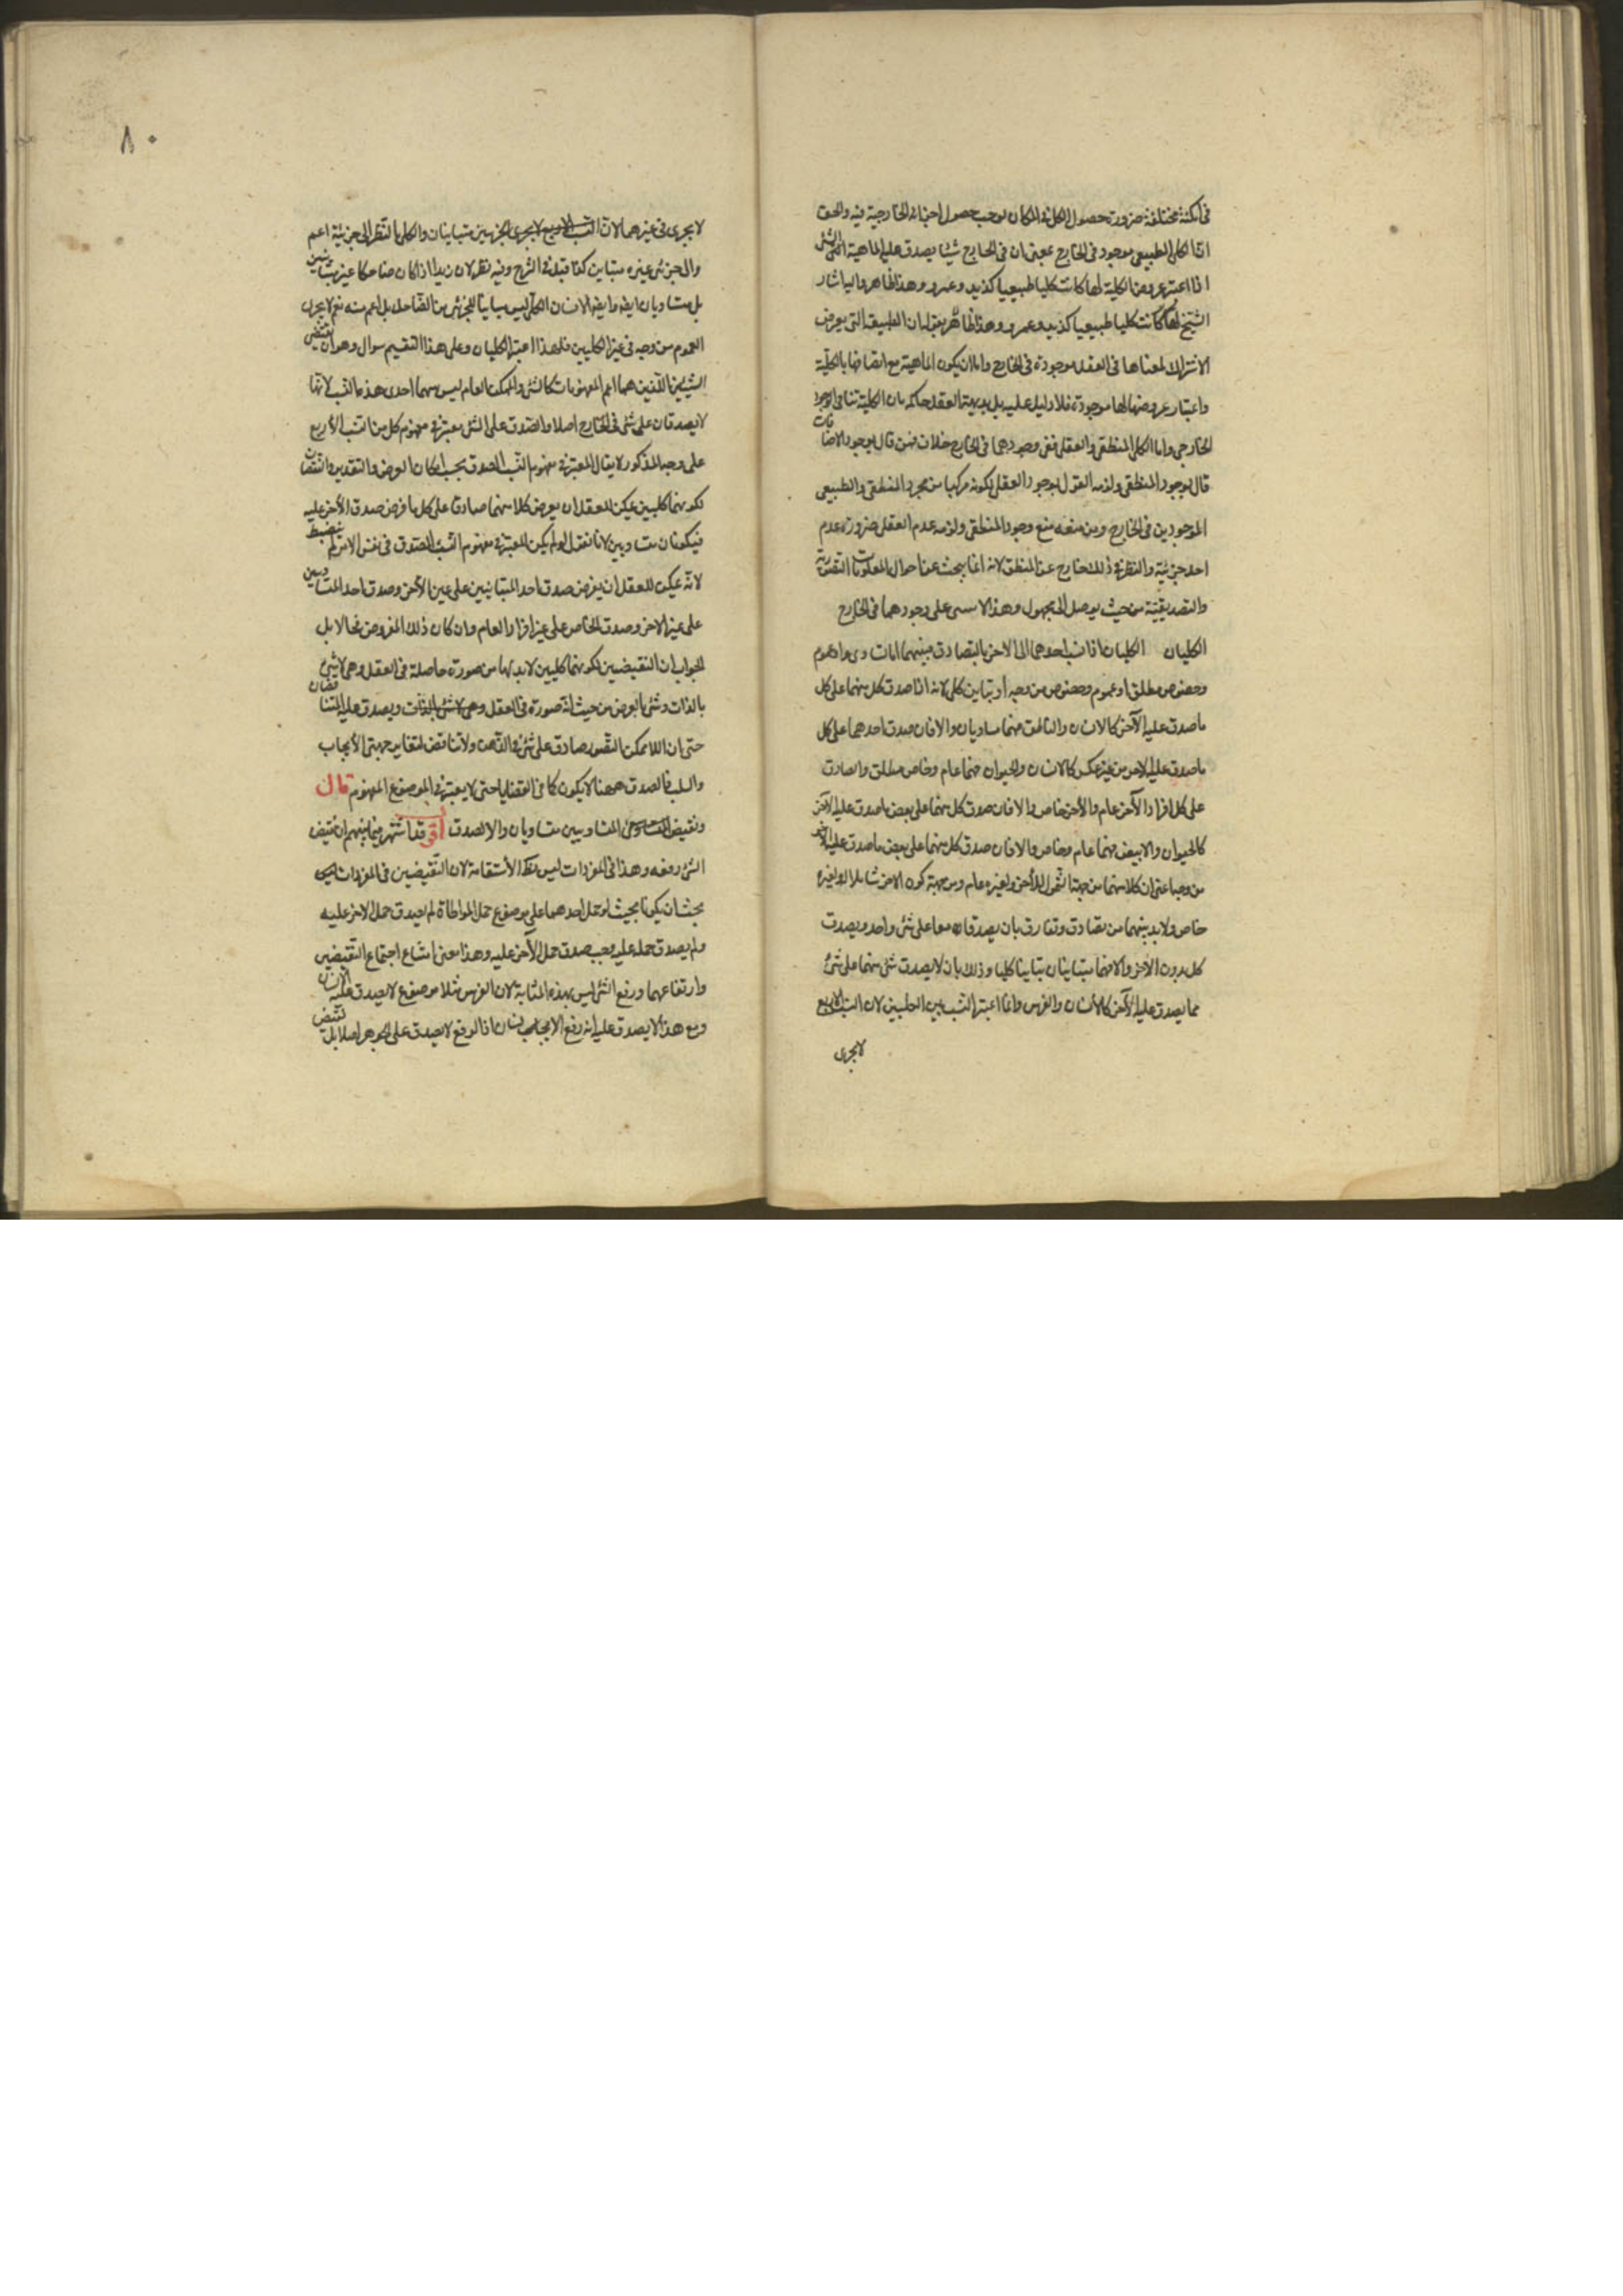 فى امكنة مختلفة ضرورة حصول الكل فى المكان يوجب حصول اجزائه الخارجية فيه والحق
ان الكلى الطبيعى موجود فى الخارج بمعنى ان فى الخارج شيئا يصدق عليه الماهية التى
اذا اعتبر عروض الكلية لها كانت كليا طبيعيا كزيد وعمرو وهذا ظاهر واليه اشار
الشيخ لها كانت كليا طبيعيا كزيد وعمرو وهذا ظاهر بقوله ان الطبيعة التى يعرض
الاشتراك لمعناها فى العقل موجودة فى الخارج واما ان يكون الماهية مع اتصافها بالكلية
واعتبار عروضها لها موجودة فلا دليل عليه بل بديهة العقل حاكمة بان الكلية تنافى الوجود
الخارجى واما الكلى المنطقى والعقلى ففى وجودهما فى الخارج خلاف فمن قال بوجود الاضافات
قال بوجود المنطقى ولزمه القول بوجود العقلى لكونه مركبا من مجرد المنطقى والطبيعى
الموجودين فى الخارج ومن منعه منع وجود المنطقى ولزمه عدم العقلى ضرورة عدم
احد جزئيه والنظر فى ذلك خارج عن المنطق لانه انما يبحث عن احوال المعلومات التصورية
والتصديقية من حيث يوصل الى مجهول وهذا لا على وجودهما فى الخارج
الكليان الكليان اذا نسب احدهما الى الاخر بالتصادق فبينهما اما تساوى او عموم
وخصوص مطلق او عموم وخصوص من وجه او تباين كلى لانه اذا صدق كل منهما على كل
ما صدق عليه الآخر كالانسان والناطق فهما متساويان والا فان صدق احدهما على كل
ما صدق عليه الاخر من غير عكس كالانسان والحيوان فهما عام وخاص مطلق والصادق
على كل افراد الآخر عام والأخر خاص والا فان صدق كل منهما على بعض ما صدق عليه الآخر
كالحيوان والابيض فهما عام وخاص والا فان صدق كل منهما على بعض ما صدق عليه الآخر
من وجه اعنى ان كلا منهما من جهة الشمول للأخر ولغيره عام ومن جهة كون الاخر شاملا له ولغيره
خاص ولا بد بينهما من تصادق وتفارق بان يصدقان معا على شئ واحد ويصدق
كل بدون الاخر والا فهما متباينان تباينا كليا وذلك بان لا يصدق شئ منهما على شئ
مما يصدق عليه الآخر كالانسان والفرس وانما اعتبر النسب بين الكليين لان النسب الاربع
لا يجرى
٨٠
لا يجرى فى غيرهما لان النسب الاربع لا يجرى الجزئيين متباينان والكلى بالنظر الى جزئيه اعم
والى جزئى غيره مباين كذا قيل فى الشرح وفيه نظر لان زيدا اذا كان ضاحكا غير متباينين
بل متساويان ايضا وايضا الانسان الكلى ليس مباينا للجزئى من الضاحك بل اعم منه نعم لا يجرى
العموم من وجه فى غير الكليين فلهذا اعتبر الكليان وعلى هذا التقسيم سوال وهو ان نقيضى
الشيئين اللذين هما اعم المفهومات كالشئ والممكن العام ليس بينهما احدى هذه النسب لانهما
لا يصدقان على شئ فى الخارج اصلا والصدق على الشئ معتبر فى مفهوم كل من النسب الأربع
على وجه المذكور لا يقال المعتبر فى مفهوم النسب الصدق بحسب امكان الفرض والتقدير والنقيضان
لكونهما كليين يمكن للعقل ان يفرض كلا منهما صادقا على كل ما فرض صدق الأخر عليه
فيكونان متساويين لانا نقول لو لم يكن المعتبر فى مفهوم النسب الصدق فى نفس الامر لم ينضبط
لانه يمكن للعقل ان يفرض صدق احد المتباينين على عين الأخر وصدق احد المتساويين
على غير الاخر وصدق الخاص على غير افراد العام وان كان ذلك المفروض محالا بل
الجواب ان النقيضين لكونهما كليين لا بد لهما من صورة حاصلة فى العقل وهى لا شئ
بالذات وشئ بالعرض من حيث انه صورة فى العقل وهى لا شئ بالذات ويصدق عليه المتناقضان
حتى ان اللا ممكن التصور صادق على شئ فى الذهن ولا تناقض لتغاير جهتى الأيجاب
والسلب فالصدق ههنا لا يكون كما فى القضايا حتى لا يعتبر فى الموضوع المفهوم قال
ونقيض المتساوى المتساويين متساويان والا لصدق أقول قد اشتهر فيما بينهم ان نقيض
الشئ رفعه وهذا فى المفردات ليس بظاهر الأستقامة لان النقيضين فى المفردات
يجب ان يكونا بحيث لو حمل احدهما على موضوع حمل المواطاة لم يصدق حمل الاخر عليه
ولم يصدق حمله عليه يجب صدق حمل الآخر عليه وهذا معنى امتناع اجتماع النقيضين
وارتفاعهما ورفع الشئ ليس بهذه المثابة لان الفرس مثلا موضوع لا يصدق عليه الانسان
ومع هذا لا يصدق عليه انه رفع الانسان اذ الرفع لا يصدق على الجوهر اصلا بل نقيض